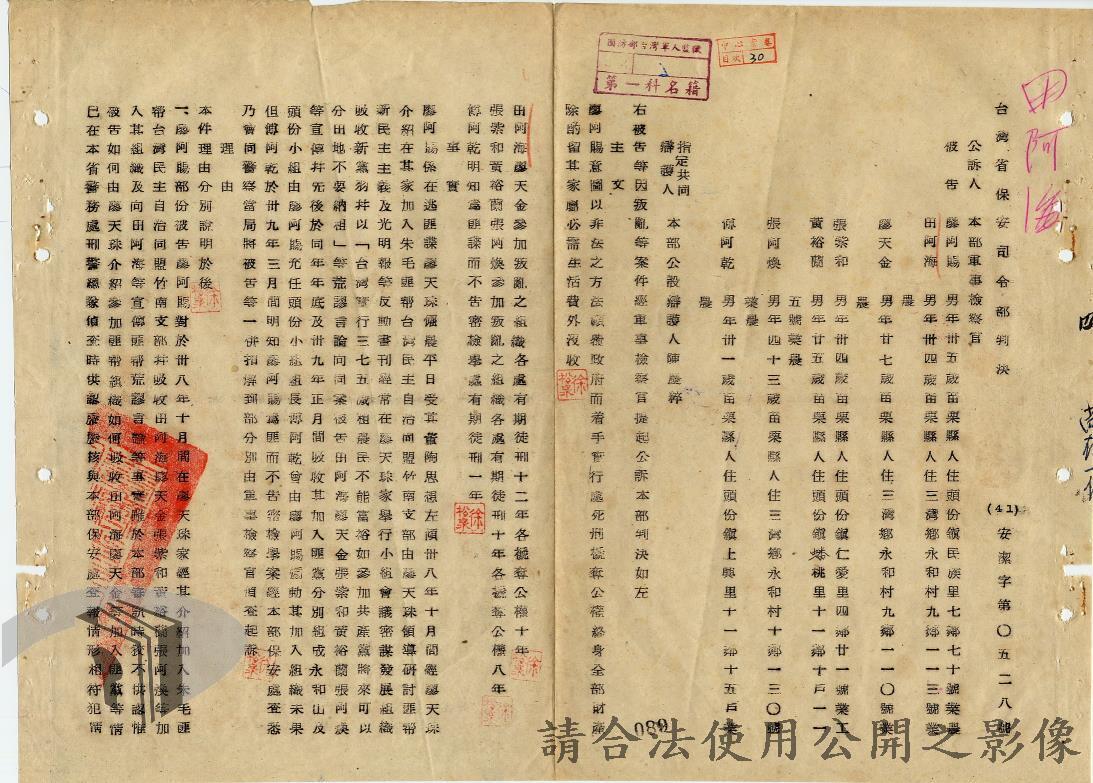 田阿海
台灣省保安司令部判決
(41)安潔字第〇五二八號
公訴人 本部軍事檢察官
被告 廖阿賜 男年卅五歲苗栗縣人住頭份鎮民族里七鄰七十號業農
田阿海 男年卅四歲苗栗縣人住三灣鄉永和村九鄰一一三號業農
廖天金 男年廿七歲苗栗縣人住三灣鄉永和村九鄰一一〇號業農
張崇和 男年卅四歲苗栗縣人住頭份鎮仁愛里四鄰廿一號業工
黃裕蘭 男年廿五歲苗栗縣人住頭份鎮蟠桃里十一鄰十戶一一五號業農
張阿煥 男年四十三歲苗栗縣人住三灣鄉永和村十鄰一三〇號業農
傅阿乾 男年卅一歲苗栗縣人住頭份鎮上興里十一鄰十五戶業農
指定共同辯護人 本部公設辯護人陳晨粹
右被告等因叛亂等案件經軍事檢察官提起公訴本部判決如左
主文
廖阿賜意圖以非法之方法顛覆政府而着手實行處死刑褫奪公權終身全部財產
除酌留其家屬必需生活費外沒收
田阿海廖天金參加叛亂之組織各處有期徒刑十二年各褫奪公權十年
張崇和黃裕蘭張阿煥參加叛亂之組織各處有期徒刑十年各褫奪公權八年
傅阿乾明知為匪諜而不告密檢舉處有期徒刑一年
事實
廖阿賜係在逃匪諜廖天珠佃農平日受其薰陶思想左傾卅八年十月間經廖天珠
介紹在其家加入朱毛匪幫台灣民主自治同盟竹南支部由廖天珠領導研討匪幫
新民主主義及光明報等反動書刊經常在廖天珠家舉行小組會議密謀發展組織
吸收新黨羽并以「台灣實行三七五減租農民不能富裕如參加共產黨將來可以
分田地不要納租」等荒謬言論向同案被告田阿海廖天金張崇和黃裕蘭張阿煥
等宣傳并先後於同年年底及卅九年正月間吸收其加入匪黨分別組成永和山及
頭份小組由廖阿賜充任頭份小組組長傅阿乾曾由廖阿賜煽動其加入組織未果
但傅阿乾於卅九年三月間明知廖阿賜為匪而不告密檢舉案經本部保安處查悉
乃會同警察當局將被告等一併扣解到部分別由軍事檢察官偵查起訴
理由
本件理由分別說明於後
一、廖阿賜部份被告廖阿賜對於卅八年十月間在廖天珠家經其介紹加入朱毛匪
幫台灣民主自治同盟竹南支部并吸收田阿海廖天金張崇和黃裕蘭張阿煥等加
入其組織及向田阿海等宣傳匪幫荒謬言論等事實雖於本部審訊時俊不供認惟
被告如何由廖天珠介紹參加匪幫組織如何吸收田阿海廖天金等加入匪黨等情
已在本省警務處刑警總隊偵查時供認歷歷核與本部保安處查報情形相符犯情
國防部台灣軍人監獄
第一科名籍
目次 30
080
請合法使用公開之影像